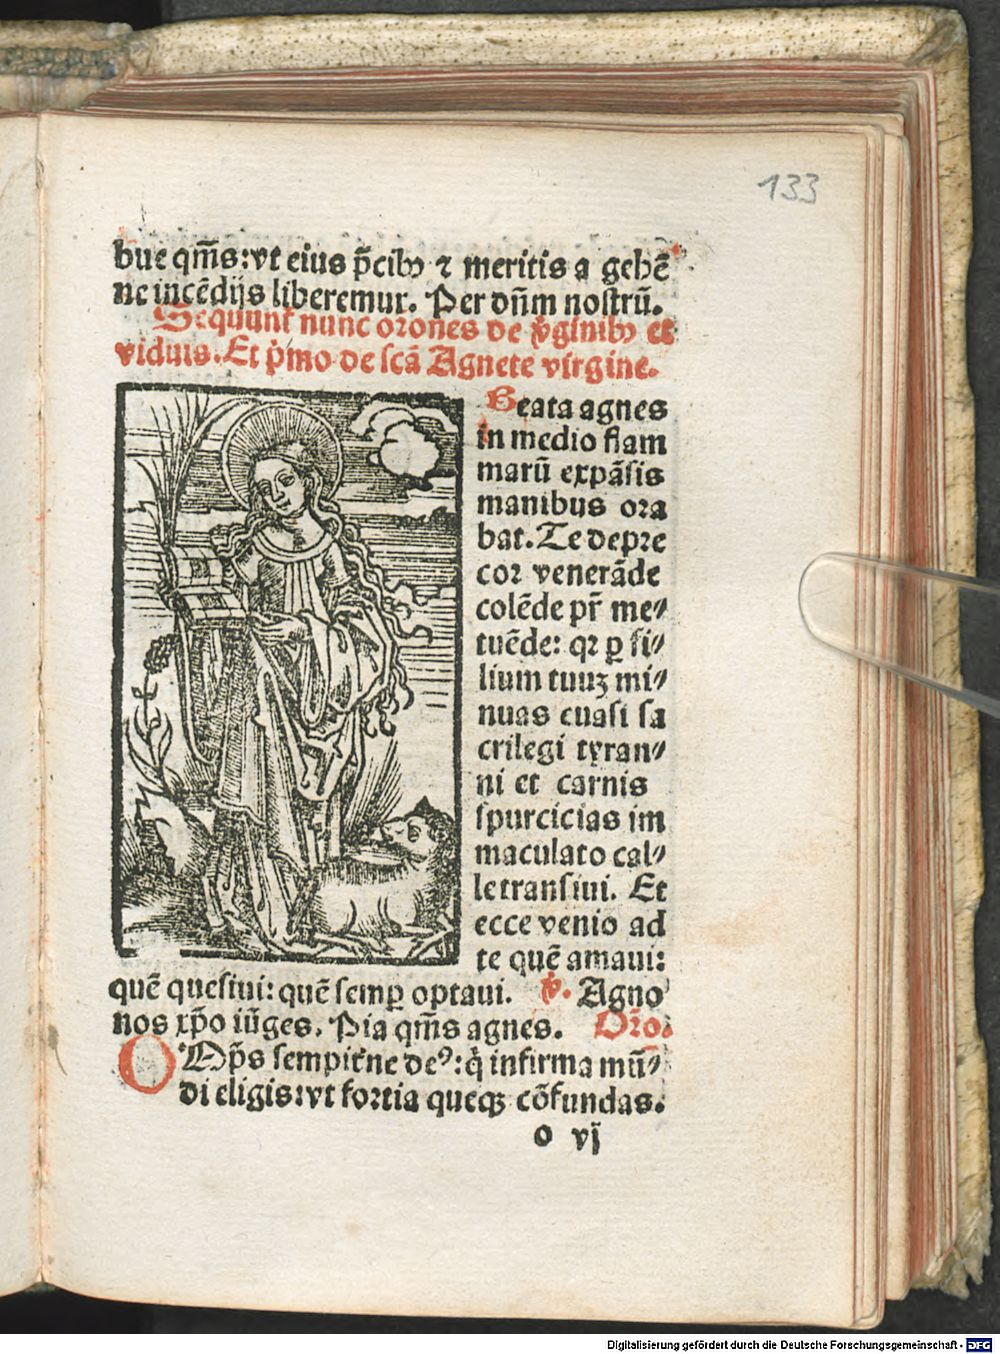 133
bue qm̄s: vt eius p̄cibꝫ ⁊ meritis a gehē
ne incēdijs liberemur. Per dn̄m nostrū.
Sequunt̄ nunc orōnes de v̓ginibꝫ et
viduis. Et p̓mo de scā Agnete virgine.
Beata agnes
in medio flam
marū expāsis
manibus ora
bat. Te depre
cor venerāde
colēde pr̄ me⸗
tuēde: qꝛ ꝑ fi⸗
lium tuuꝫ mi⸗
nuas euasi sa
crilegi tyran⸗
ni et carnis
spurcicias im
maculato cal⸗
le transiui. Et
ecce venio ad
te quē amaui:
quē quesiui: quē semꝑ optaui. v̓. Agno
nos xp̄o iūges. Pia qm̄s agnes. Or̄o.
OMp̄s sempit̄ne deꝰ: q̓ infirma mū⸗
di eligis: vt fortia queqꝫ cōfundas.
o vj
Digitalisierung gefördert durch die Deutsche Forschungsgemeinschaft - DFG